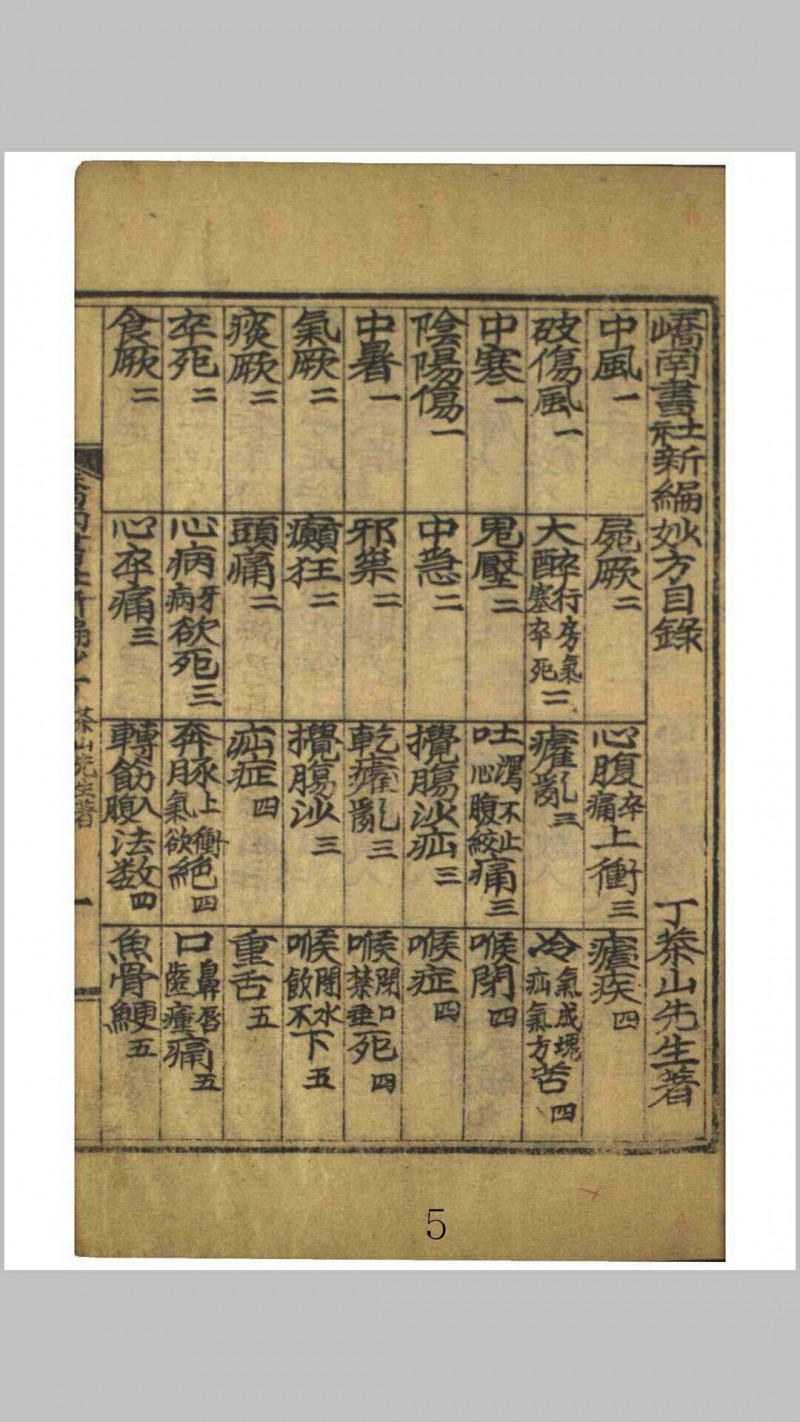 嶠南書社新編妙方目錄 丁茶山先生著
中風一 屍厥二 心腹卒痛上衝三 瘧疾四
破傷風一 大醉行房氣塞卒死二 癨亂三 冷氣成塊疝氣方苦四
中寒一 鬼壓二 吐瀉不止心腹絞痛三 喉閉四
陰陽傷一 中惡二 攪膓沙疝三 喉症四
中暑一 邪祟二 乾癨亂三 喉閉口禁垂死四
氣厥二 癲狂二 攪膓沙三 喉閉水飲不下五
痰厥二 頭痛二 疝症四 重舌五
卒死二 心病牙病欲死三 奔豚上衝氣欲絶四 口鼻唇齒瘇痛五
食厥二 心卒痛三 轉筋入腹法数四 魚骨鯁五
茶山先生著 一
5